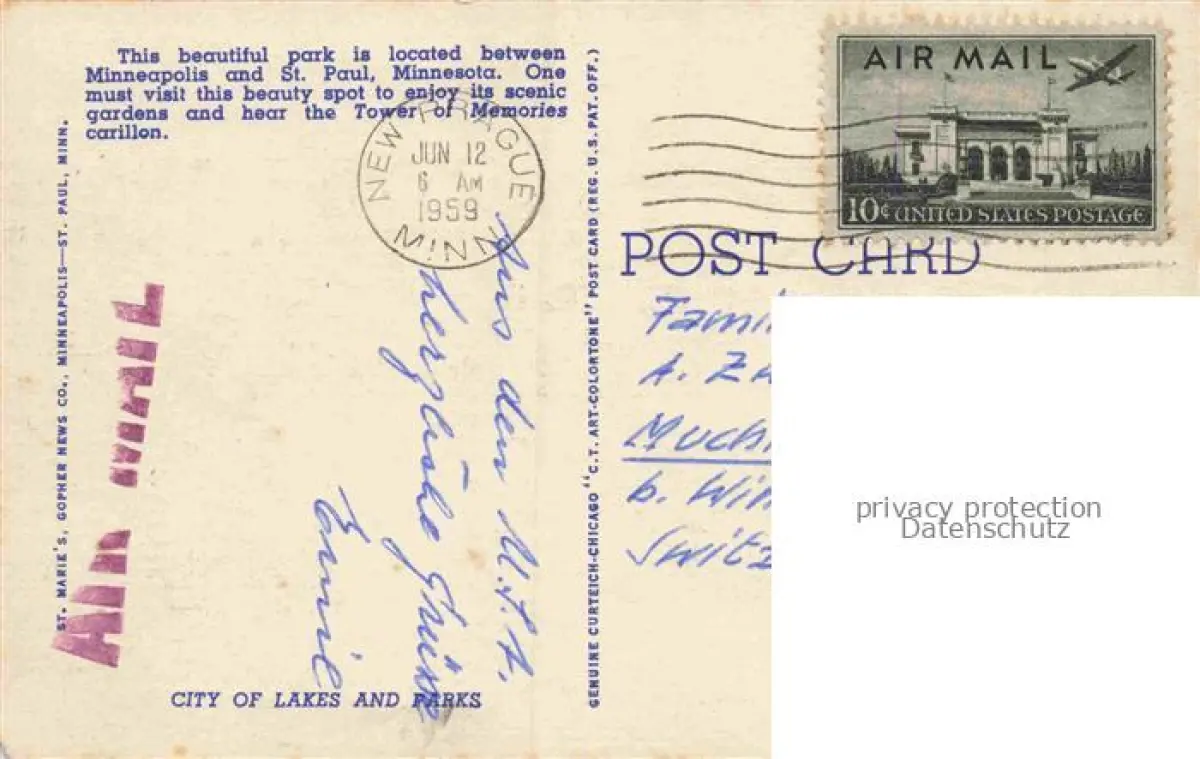 This beautiful park is located between
Minneapolis and St. Paul, Minnesota. One
must visit this beauty spot to enjoy its scenic
gardens and hear the Tower of Memories
carillon.
ST. MARIE'S, GOPHER NEWS CO., MINNEAPOLIS—ST. PAUL, MINN.
AIR MAIL
NEW PRAGUE
JUN 12
6 AM
1959
MINN
Aus den U.S.A.
herzliche Grüsse
Emil
CITY OF LAKES AND PARKS
GENUINE CURTEICH-CHICAGO "C.T. ART-COLORTONE" POST CARD (REG. U.S. PAT. OFF.)
AIR MAIL
10¢ UNITED STATES POSTAGE
POST CARD
Fami
A. Z
Much
b. Win
Switz
privacy protection
Datenschutz